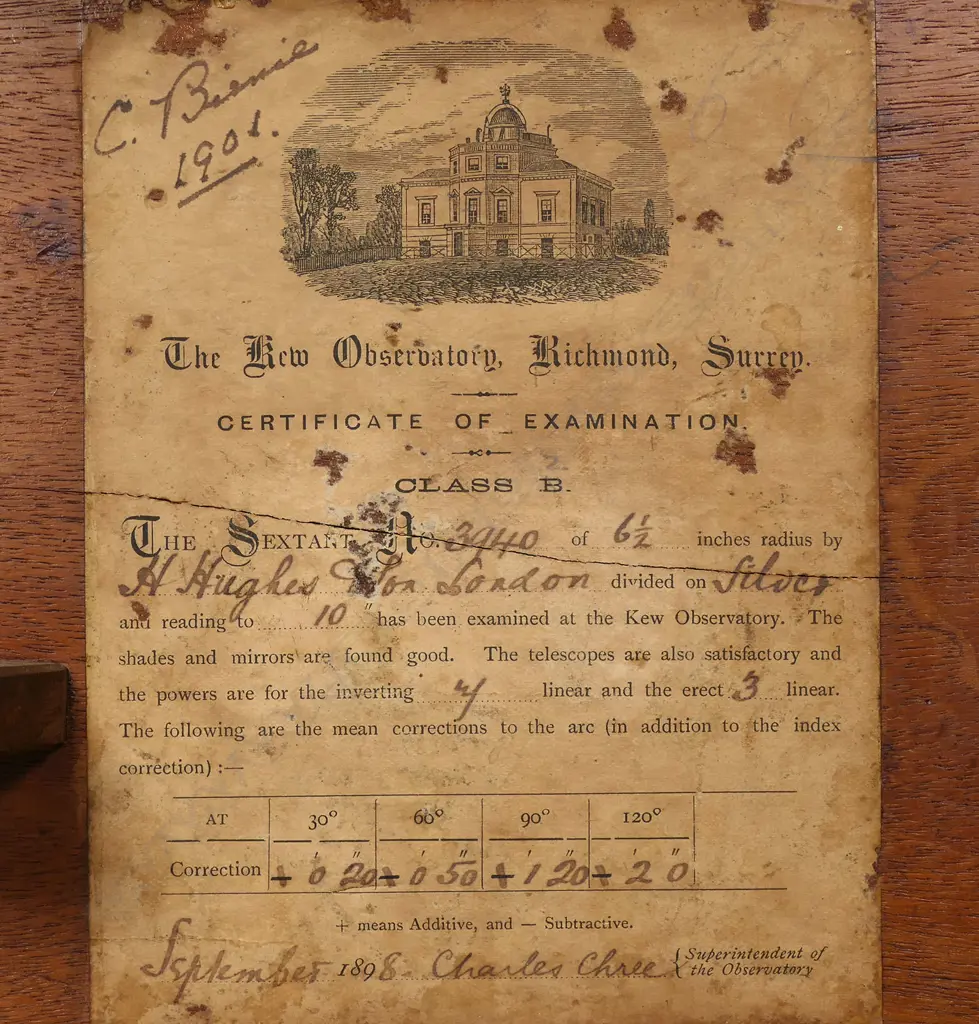 C. Birnie
1901.
The Kew Observatory, Richmond, Surrey.
CERTIFICATE OF EXAMINATION.
CLASS B.
THE SEXTANT No. 3940 of 6½ inches radius by
H Hughes & Son London divided on Silver
and reading to 10" has been examined at the Kew Observatory. The
shades and mirrors are found good. The telescopes are also satisfactory and
the powers are for the inverting linear and the erect 3 linear.
The following are the mean corrections to the arc (in addition to the index
correction) :—
AT 30° 60° 90° 120°
Correction + 0' 20" + 0' 50" + 1' 20" + 2' 0"
+ means Additive, and — Subtractive.
September 1898. Charles Chree { Superintendent of
the Observatory